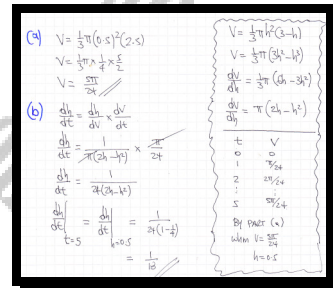 (a) V = ⅓π(0.5)²(2.5)
V = ⅓π × ¼ × 5/2
V = 5π/24
(b) dh/dt = dh/dV × dV/dt
dh/dt = 1/π(2h-h²) × π/24
dh/dt = 1/24(2h-h²)
dh/dt|t=5 = dh/dt|h=0.5 = 1/24(1-¼)
= 1/18
V = ⅓πh²(3-h)
V = ⅓π(3h²-h³)
dV/dh = ⅓π(6h-3h²)
dV/dh = π(2h-h²)
t V
0 0
1 π/24
2 2π/24
: :
5 5π/24
BY PART (a)
when V = 5π/24
h=0.5